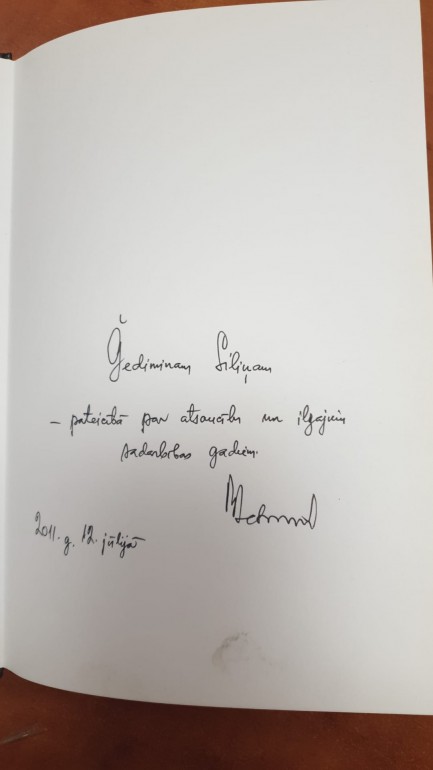 Ģediminam Siliņam
– pateicībā par atsaucību un ilgajiem
sadarbības gadiem.
2011. g. 12. jūlijā